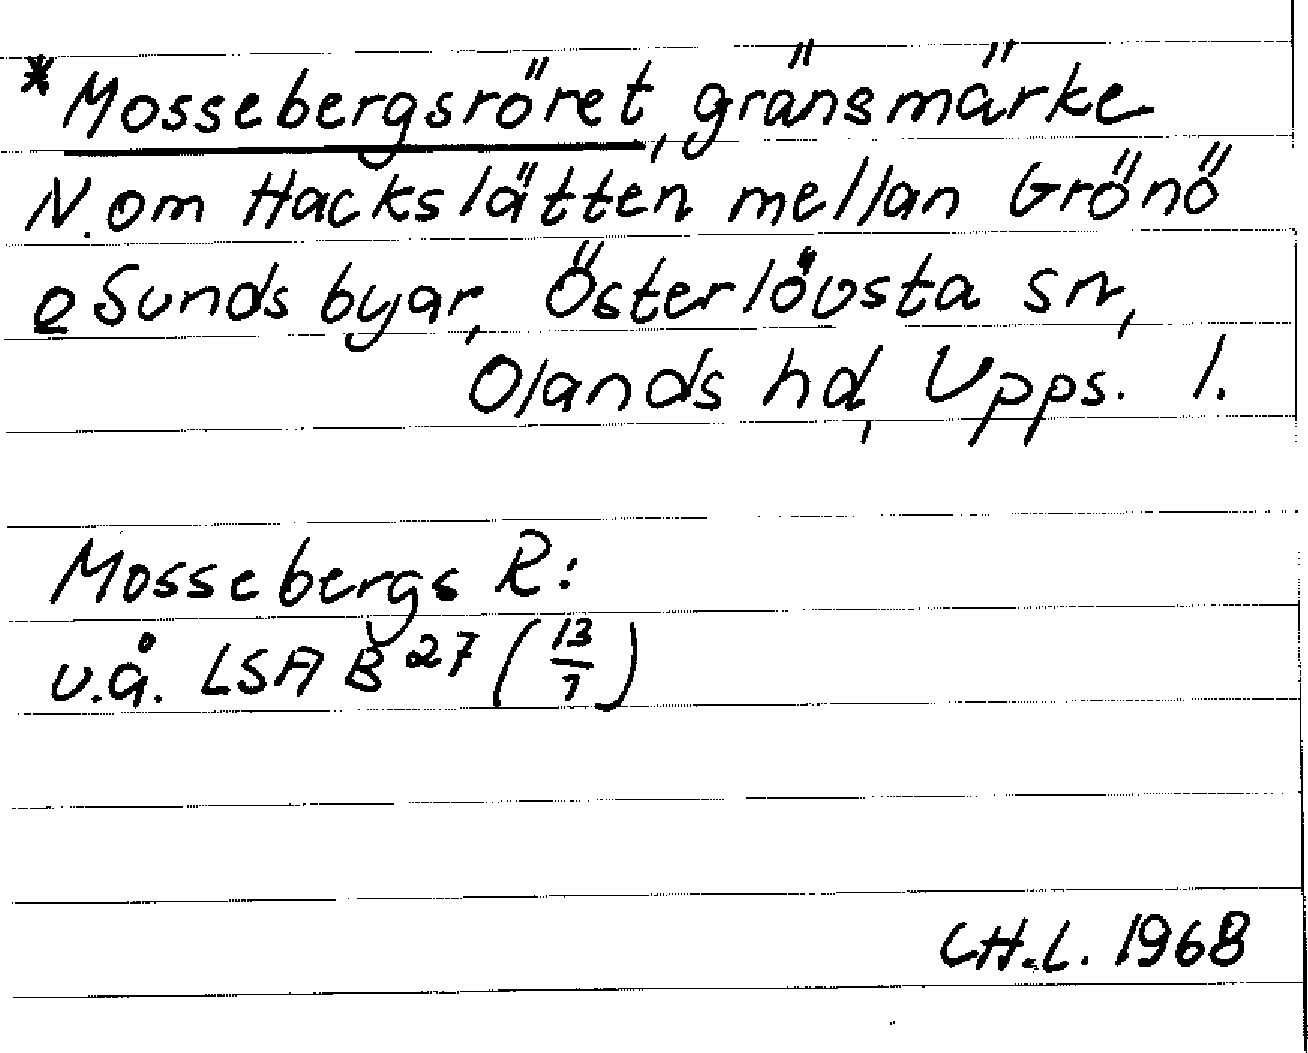 * Mossebergsröret, gränsmärke
N. om Hackslätten mellan Grönö
o Sunds byar, Österlövsta sn,
Olands hd, Upps. l.
Mossebergs R:
u.å. LSA B 27 (13/7)
CH.L. 1968